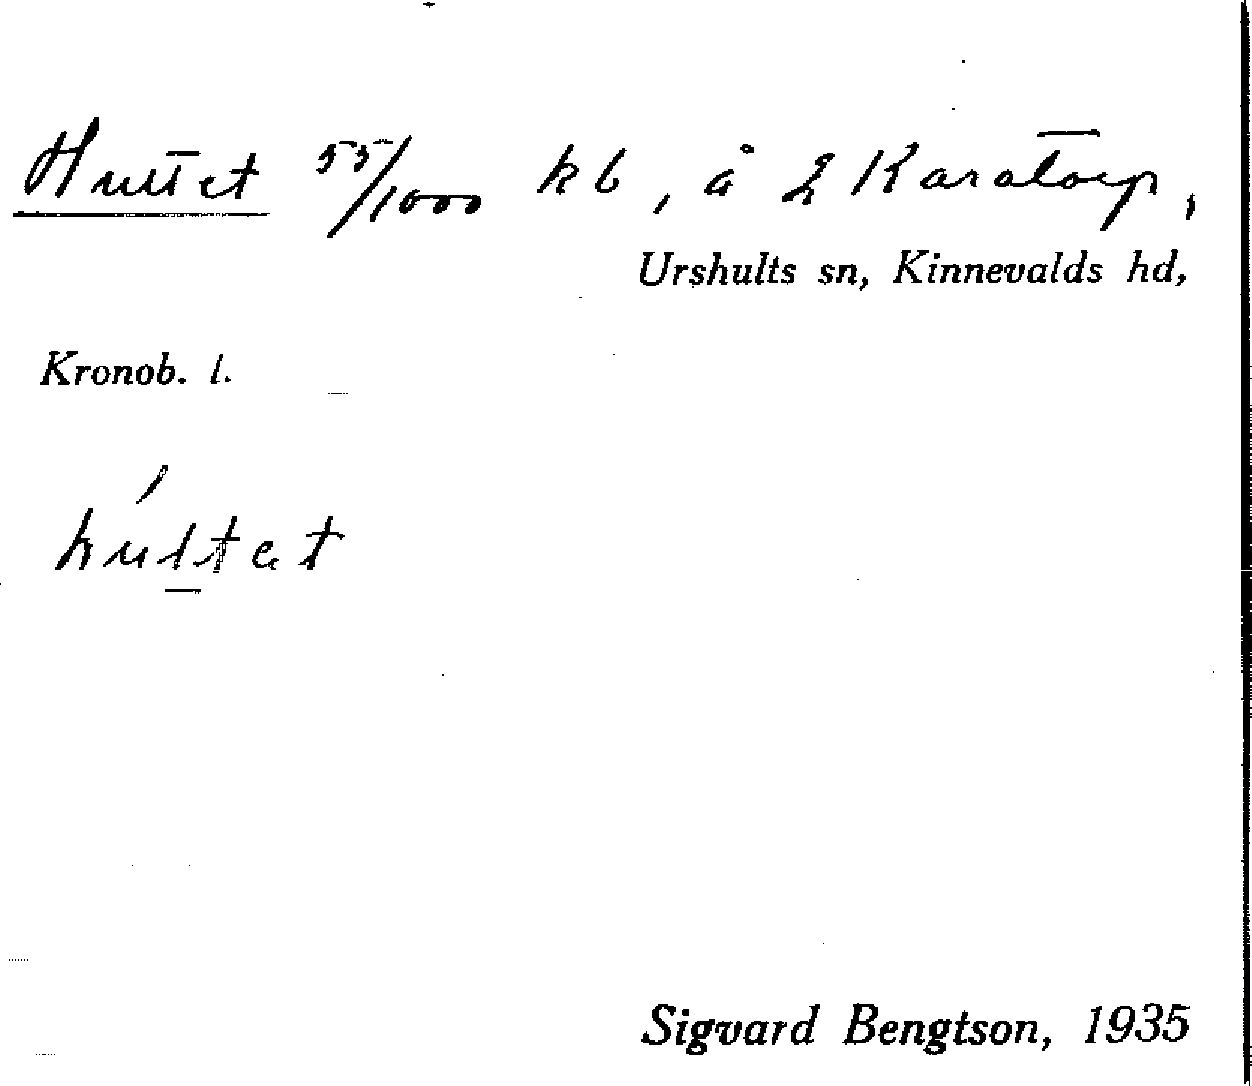 Hultet 55/1000 kb, å 2 Karatorp,
Urshults sn, Kinnevalds hd,
Kronob. l.
hultat
Sigvard Bengtson, 1935